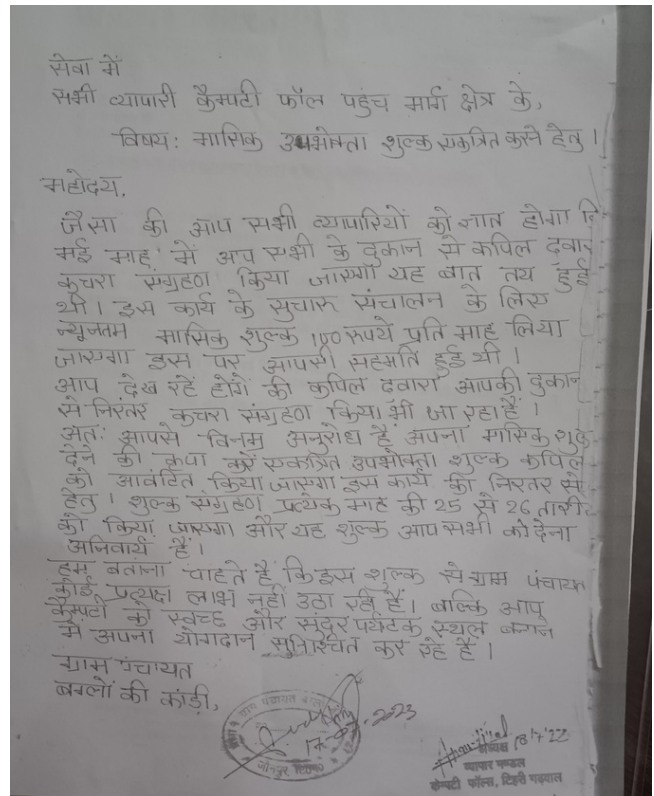 सेवा में
सभी व्यापारी कैम्पटी फॉल पहुंच मार्ग क्षेत्र के,
विषय: मासिक उपभोक्ता शुल्क एकत्रित करने हेतु।
महोदय,
जैसा की आप सभी व्यापारियों को ज्ञात होगा कि
मई माह में आप सभी के दुकान से कपिल दवारा
कुचरा संग्रहण किया जाएगा यह बात तय हुई
थी। इस कार्य के सुचारू संचालन के लिए
न्यूनतम मासिक शुल्क 100 रूपये प्रति माह लिया
जाएगा इस पर आपसी सहमति हुई थी।
आप देख रहें होंगे की कपिल दवारा आपकी दुकान
से निरंतर कुचरा संग्रहण किया भी जा रहा हैं।
अत: आपसे विनम्र अनुरोध हैं अपना मासिक शुल्क
देने की कृपा करें एकत्रित उपभोक्ता शुल्क कपिल
को आवंटित किया जाएगा इस कार्य की निरंतर से
हेतु। शुल्क संग्रहण प्रत्येक माह की 25 से 26 तारी
को किया जाएगा और यह शुल्क आप सभी को देना
अनिवार्य हैं।
हम बताना चाहते हैं कि इस शुल्क से ग्राम पंचायत
कोई प्रत्यक्ष लाभ नहीं उठा रही हैं। बल्कि आप
कैम्पटी को स्वच्छ और सुंदर पर्यटक स्थल बनाने
में अपना योगदान सुनिश्चित कर रहे हैं।
ग्राम पंचायत
बंग्लों की कांडी,
17-07-2023
18/7/22
अध्यक्ष
व्यापार मण्डल
कैम्पटी फॉल्स, टिहरी गढ़वाल